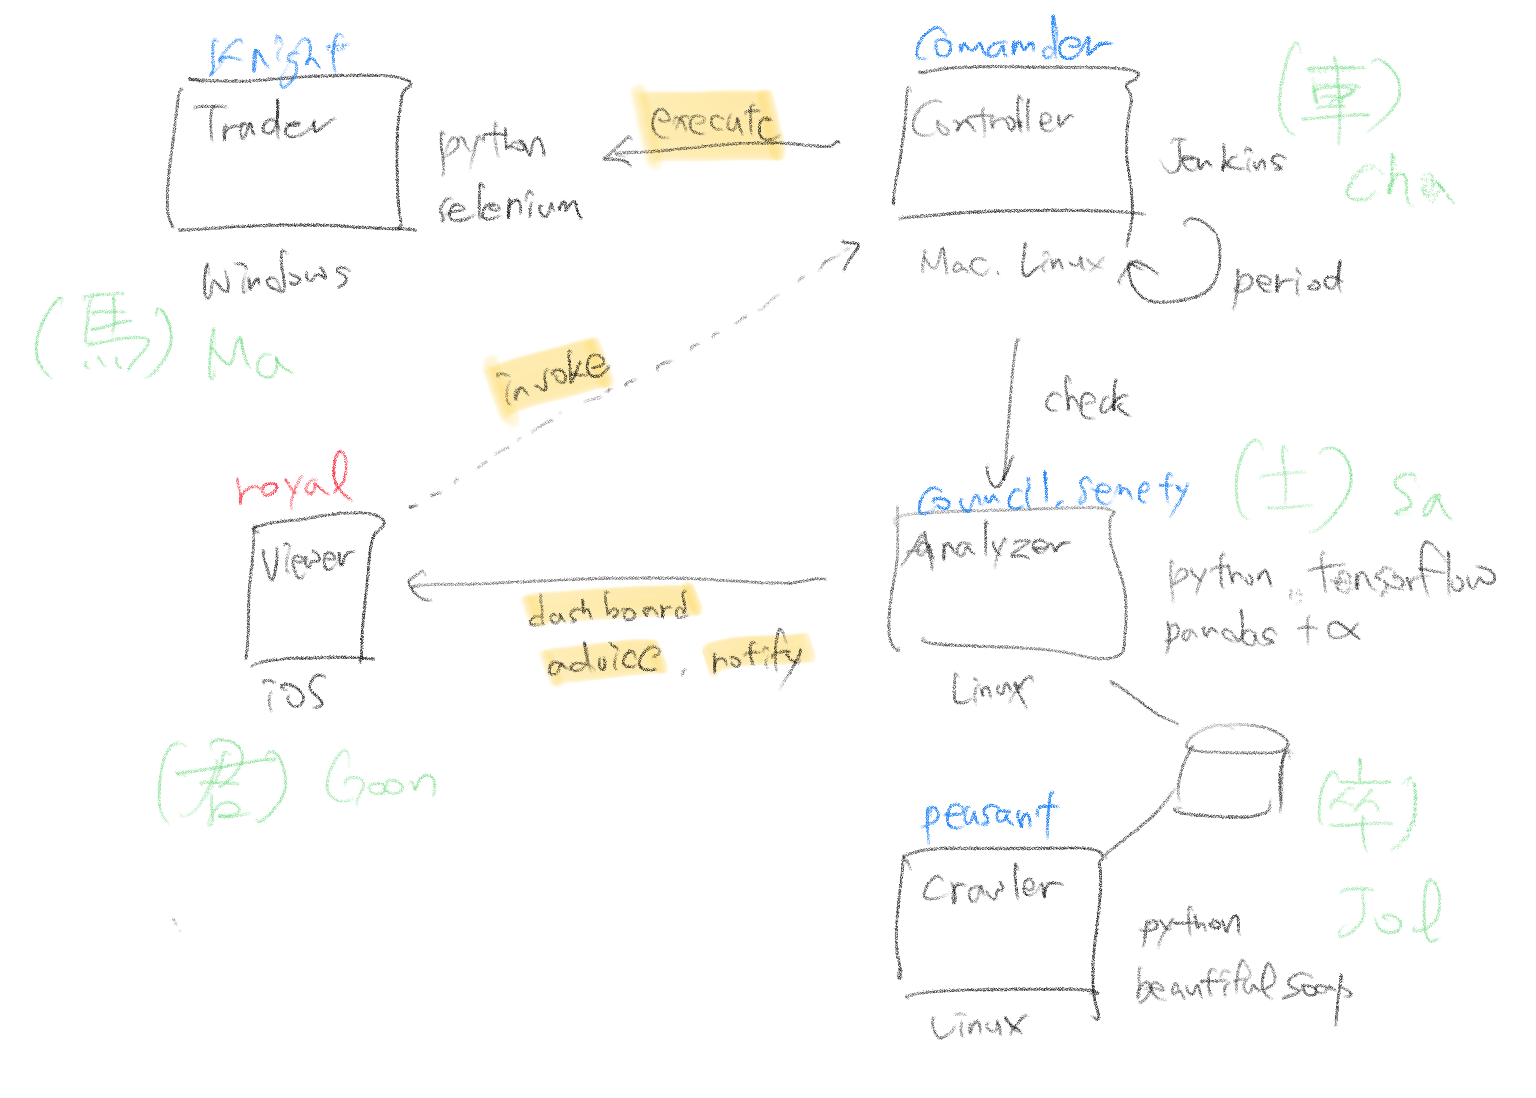 Knight
Trader
python
selenium
Windows
(馬) Ma
execute
Comamder
Controller
Jenkins
Mac. Linux
period
(車)
cha
invoke
check
royal
Viewer
iOS
(君) Goon
dashboard
advice, notify
Council. senety
Analyzer
(士) Sa
python, tensorflow
pandas + α
Linux
peasant
Crawler
(卒)
Jol
python
beautiful soap
Linux